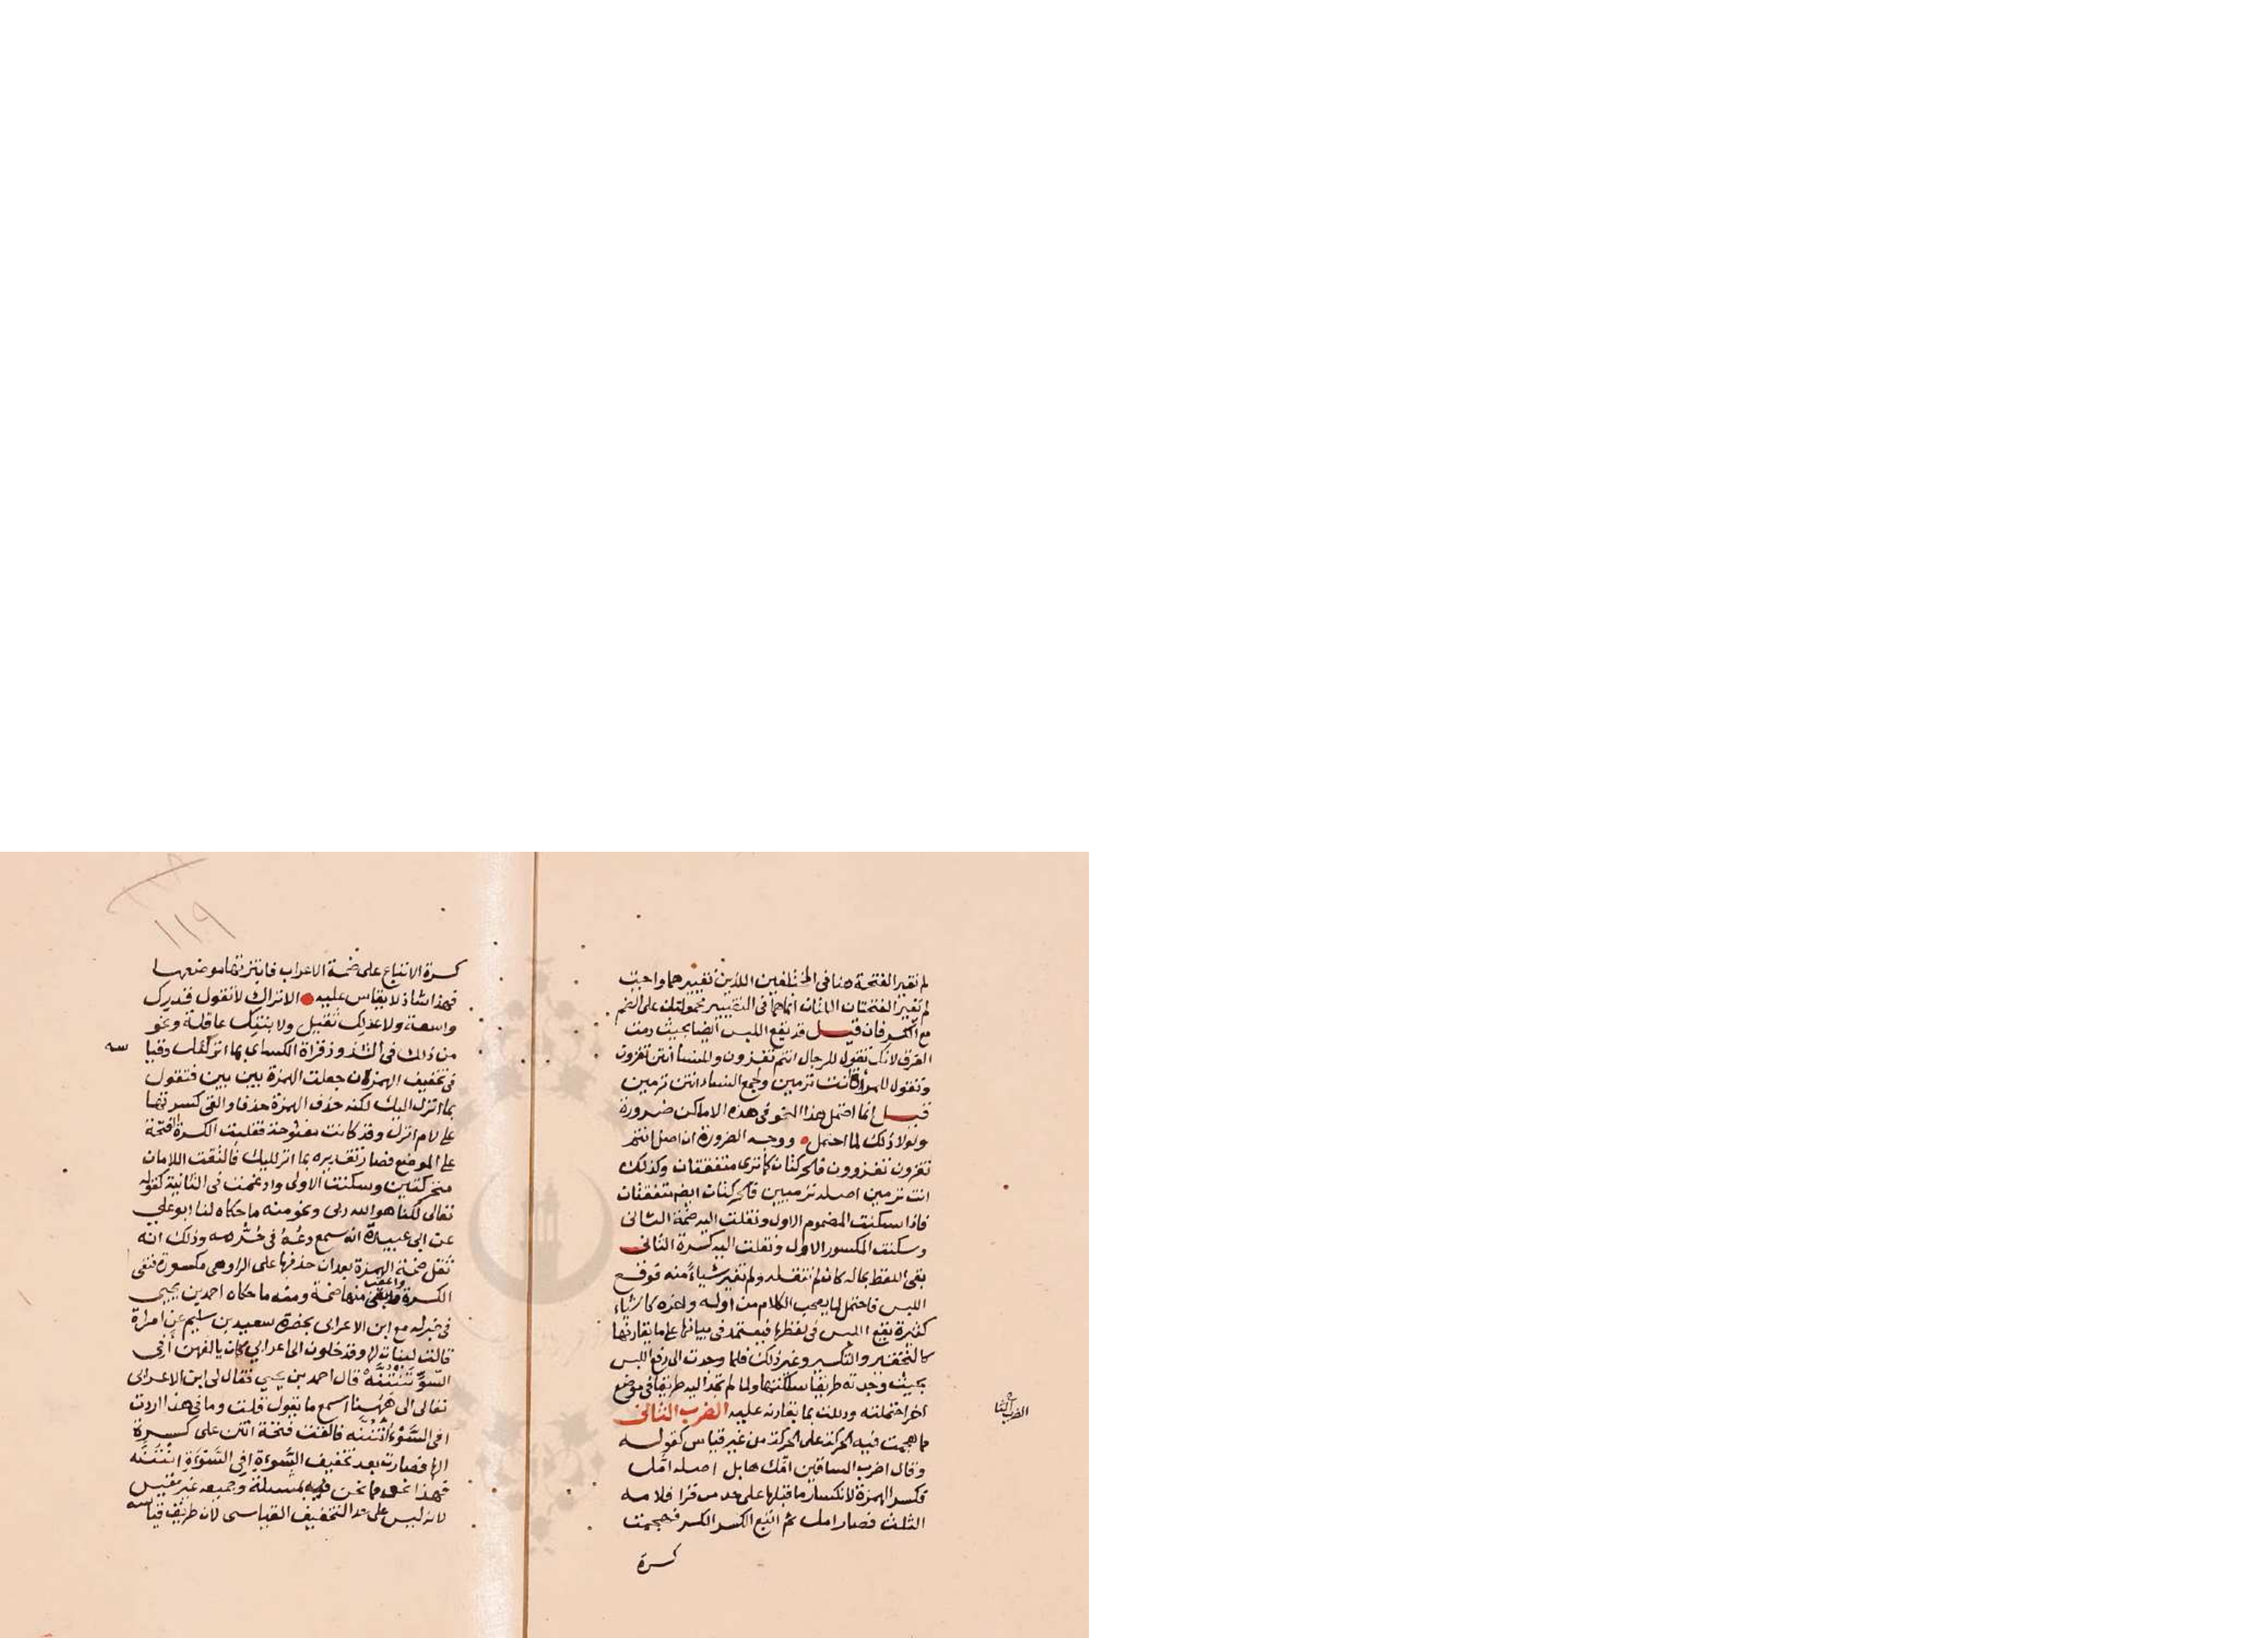 لم تغير الفتحة هنا في المختلفين اللذين تغييرهما واجب
لم تغير الفتحتان اللتان انما هما في التغيير محمولتان على الضم
مع الكسر فان قيل قد يقع اللبس ايضا بحيث رمت
الفرق لانك تقول للرجال انتم تغزون وللنسا انتن تغزون
وتقول للمراة انت ترمين ولجمع النساء انتن ترمين
قيل انما احتمل هذا النحو في هذه الاماكن ضرورة
ولولا ذلك لما احتمل ووجه الضرورة ان اصل انتم
تغزون تغزوون فالحركتان كما ترى متفقتان وكذلك
انت ترمين اصله ترميين فالحركتان ايضا متفقتان
فاذا سكنت المضموم الاول ونقلت اليه ضمة الثانى
وسكنت المكسور الاول ونقلت اليه كسرة الثانى
بقى اللفظ بحاله كانه لم تنقله ولم تغير شياءً منه فوقع
اللبس فاحتمل لما يصحب الكلام من اوله واخره كاشياء
كثيرة يقع اللبس في لفظها فيعتمد في بيانها على ما يقارنها
كالتحقير والتكسير وغير ذلك فلما وجدت الى رفع اللبس
بحيث وجدته طريقا سلكتها ولما لم تجد اليه طريقا في موضع
اخر احتملته ودللت بما يقارنه عليه الضرب الثانى
الضرب الثانى
مما هجمت فيه الحركة على الحركة من غير قياس كقوله
وقال اضرب الساقين امك هابل اصله امك
فكسر الهمزة لانكسار ما قبلها على حد من قرا فلامه
الثلث فصار امك ثم اتبع الكسر الكسر فهجمت
كسرة
١١٩
كسرة الاتباع على ضمة الاعراب فابتزتها موضعها
فهذا شاذ لا يقاس عليه الا تراك لا تقول قدرك
واسعة ولا عدلك ثقيل ولا بنتك عاقلة ونحو
من ذلك في الشذوذ قراة الكساى بما انزلك وقيا سه
في تخفيف الهمزة ان جعلت الهمزة بين بين فتقول
بما انزل اليك لكنه حذف الهمزة حذفا والقى كسرتها
على لام انزل وقد كانت مفتوحة فغلبت الكسرة الفتحة
على الموضع فصار تقديره بما انزلليك فالتقت اللامان
متحركتين وسكنت الاولى وادغمت فى الثانية كقوله
تعالى لكنا هو الله ربى ونحو منه ما حكاه لنا ابو على
عن ابى عبيدة انه سمع دعه في حر امه وذلك انه
نقل ضمة الهمزة بعد ان حذفها على الرا وهى مكسورة فنفى
الكسرة واعقب منها ضمة ومنه ما حكاه احمد بن يحيى
في خبر له مع ابن الاعرابى بحضرة سعيد بن سليم عن امراة
قالت لبنات لها وقد خلون الى اعرابي كان يالفهن أفى
السَّوَّتَنْتُنَّهْ قال احمد بن يحيى فقال لى ابن الاعرابى
تعالى الى ههنا اسمع ما تقول قلت وما في هذا اردت
افى السَّوْءَة انتُنَّه فالقت فتحة انتن على كسرة
الها فصارت بعد تخفيف السوءة افى السوءة انتنه
فهذا نحو مما نحن فيه وجميعه غير مقيس
لانه ليس على حد التخفيف القياسى لان طريق قياسه